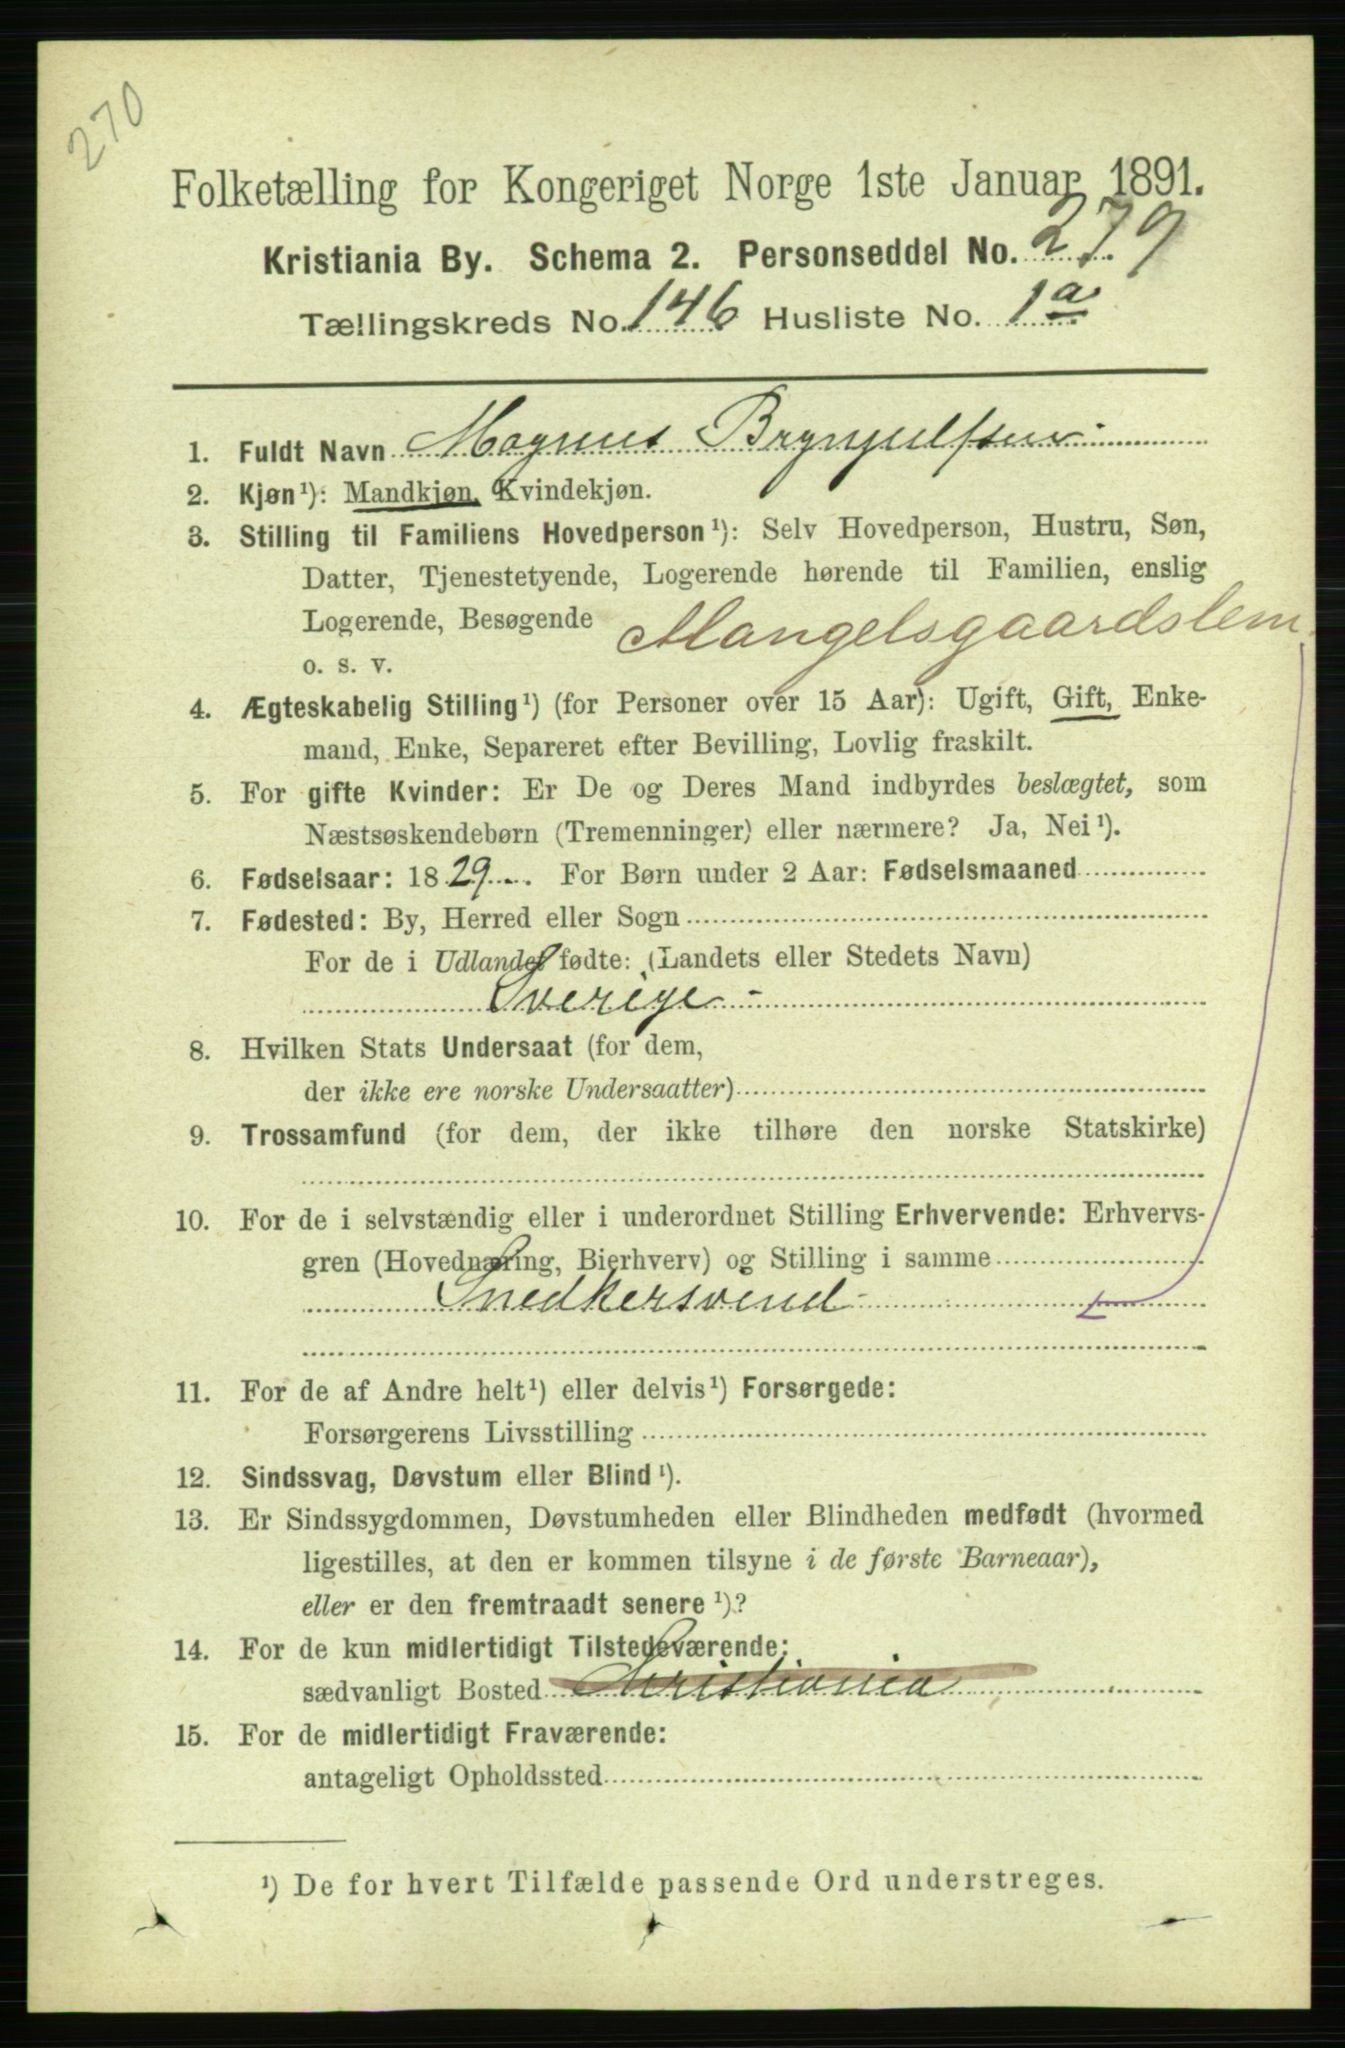 270
Folketælling for Kongeriget Norge 1ste Januar 1891.
Kristiania By. Schema 2. Personseddel No. 279
Tællingskreds No. 146 Husliste No. 1a
1. Fuldt Navn Magnus Brynjulfsen
2. Kjøn¹): Mandkjøn, Kvindekjøn.
3. Stilling til Familiens Hovedperson¹): Selv Hovedperson, Hustru, Søn,
Datter, Tjenestetyende, Logerende hørende til Familien, enslig
Logerende, Besøgende Mangelsgaardslem
o. s. v.
4. Ægteskabelig Stilling¹) (for Personer over 15 Aar): Ugift, Gift, Enke-
mand, Enke, Separeret efter Bevilling, Lovlig fraskilt.
5. For gifte Kvinder: Er De og Deres Mand indbyrdes beslægtet, som
Næstsøskendebørn (Tremenninger) eller nærmere? Ja, Nei¹).
6. Fødselsaar: 1829. For Børn under 2 Aar: Fødselsmaaned
7. Fødested: By, Herred eller Sogn
For de i Udlandet fødte: (Landets eller Stedets Navn)
Sverige
8. Hvilken Stats Undersaat (for dem,
der ikke ere norske Undersaatter)
9. Trossamfund (for dem, der ikke tilhøre den norske Statskirke)
10. For de i selvstændig eller i underordnet Stilling Erhvervende: Erhvervs-
gren (Hovednæring, Bierhverv) og Stilling i samme
Snedkersvend
11. For de af Andre helt¹) eller delvis¹) Forsørgede:
Forsørgerens Livsstilling
12. Sindssvag, Døvstum eller Blind¹).
13. Er Sindssygdommen, Døvstumheden eller Blindheden medfødt (hvormed
ligestilles, at den er kommen tilsyne i de første Barneaar),
eller er den fremtraadt senere¹)?
14. For de kun midlertidigt Tilstedeværende:
sædvanligt Bosted Christiania
15. For de midlertidigt Fraværende:
antageligt Opholdssted
¹) De for hvert Tilfælde passende Ord understreges.